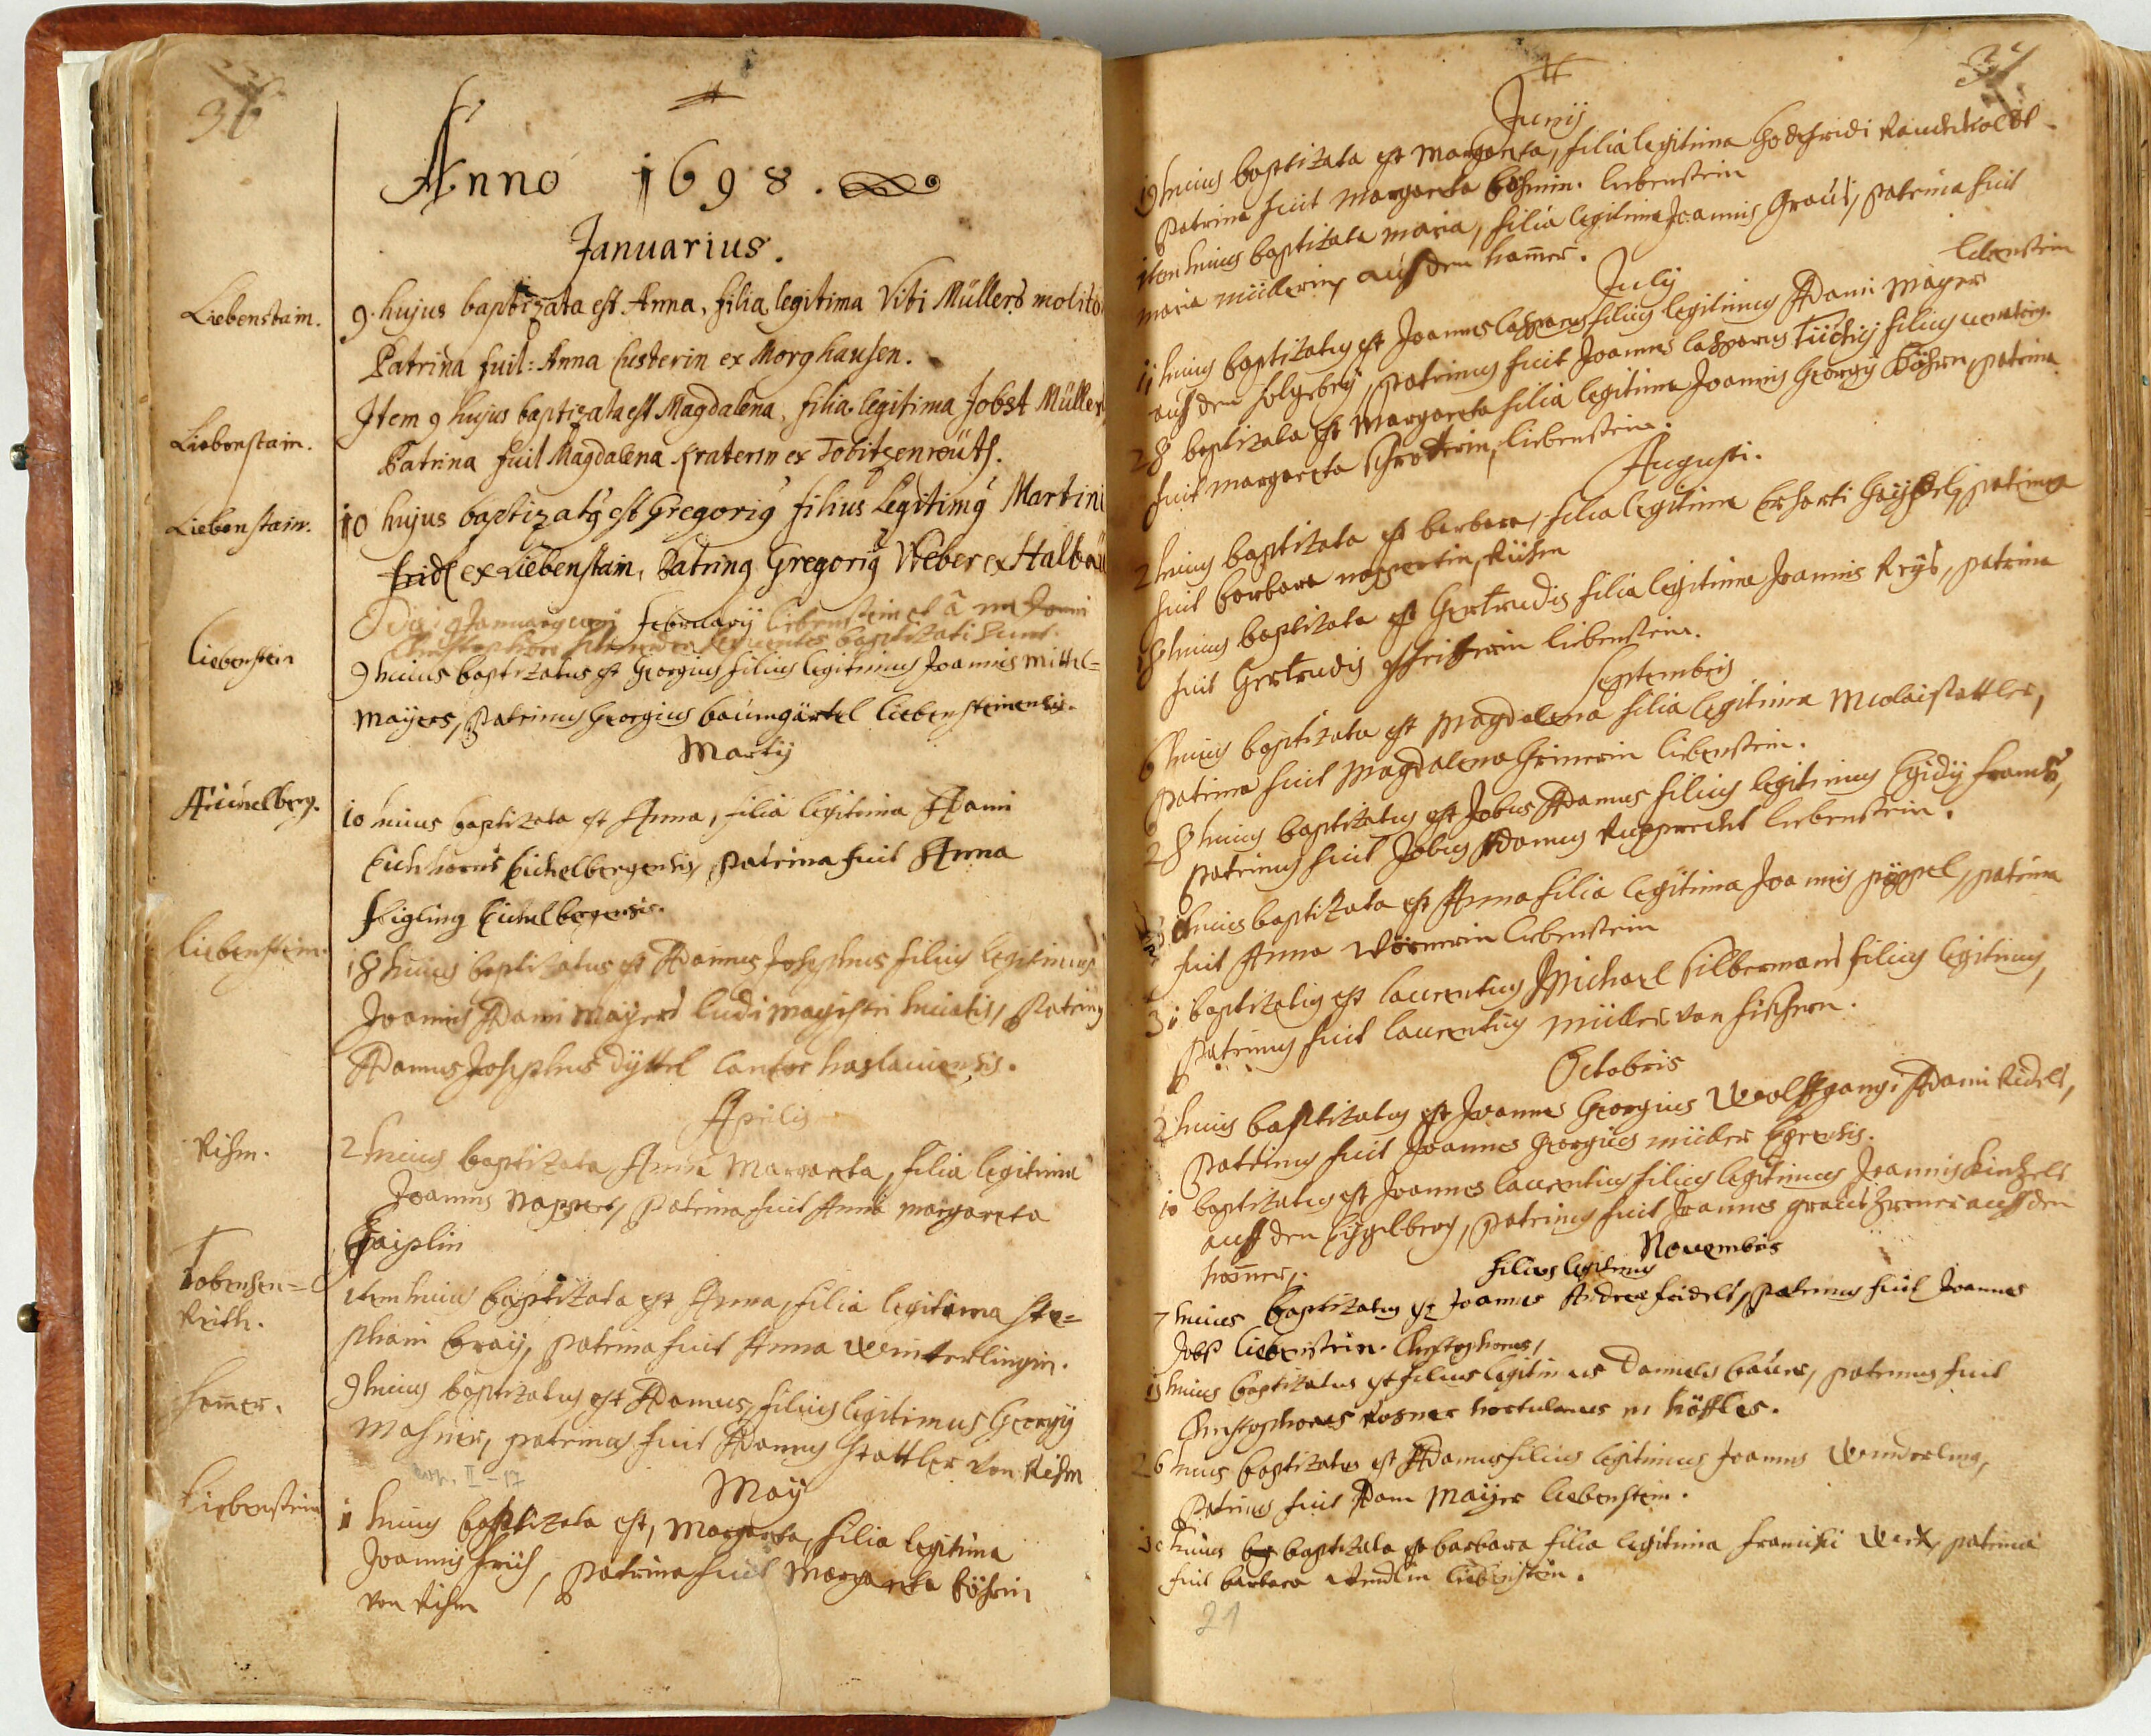 36
Anno 1698.
Januarius.
Liebenstain.
9. hujus baptizata est Anna, filia legitima Viti Müllers molito
Patrina fuit: Anna Custerin ex Morghausen.
Liebenstain.
Item 9 hujus baptizata est Magdalena, filia legitima Jobst Müller
Patrina fuit Magdalena Kraterin ex Tobitzenreüth.
Liebenstain.
10 hujus baptizatq est Gregoriq filius Legitimq Martini
fridl ex Liebenstain, Patrinq Gregoriq Weber ex Halba
February Liebenstein
sequentes baptizati sunt.
Liebenstein
9 huius baptizatus est Georgius filius legitimus Joannis Mittel=
mayers, Patrinus Georgius baumgärtel Liebensteinensis.
Martij
10 huius baptizata est Anna, filia legitima Adami
Eichhorns Eichelbergensis, Patrina fuit Anna
Eichelbergensis.
Liebenstein.
18 huius baptizatus est Adamus Josephus filius legitimus
Joannis Adami Mayers ludimagistri huiatis, Patrinus
Adamus Josephus Dyttel Cantor haslauiensis.
Aprilis
Rihm.
2 huius baptizata, Anna Margareta, filia legitima
Joannis Nappert, Patrina fuit Anna Margareta
Gaiplin
Tobensen=
Reith.
item huius baptizata est Anna, filia legitima Ste=
phani Craij, Patrina fuit Anna Winterlingin.
Hamer.
9 huius baptizatus est Adamus, filius legitimus Georgij
Masners, patrinus fuit Adamus Stattler von Rihm
II-17
May
Liebenstein
1 huius baptizata est, Margareta, filia legitima
Joannis frisch, Patrina fuit Margareta böhmin
von Rihm
37
Junij
19 huius baptizata est Margareta, filia legitima Godefridi
Patrina fuit Margareta böhmin. Liebenstein
item huius baptizata Maria, filia legitima Joannis Graus, Patrina fuit
Maria Müllerin, auf den hamer.
July
Liebenstein
11 huius baptizatus est Joannes Casparus filius legitimus Adami Mayers
auf den, Patrinus fuit Joannes Casparus filius
28 baptizata est Margareta filia legitima Joannis Georgij Böhm, patrina
fuit Margareta Schroterin, Liebenstein.
Augusti.
2 huius baptizata est barbara, filia legitima Erharti, patrina
fuit barbara nappertin, Rühm
18 huius baptizata est Gertrudis filia legitima Joannis Krys, patrina
fuit Gertrudis Liebenstein.
Septembris
6 huius baptizata est Magdalena filia legitima Nicolai stattler,
Patrina fuit Magdalena Grinerin Liebenstein.
28 huius baptizatus est Jobus Adamus filius legitimus Egidij
Patrinus fuit Jobus Adamus Rupprecht Liebenstein.
huius baptizata est Anna filia legitima Joannis pöppel, patrina
fuit Anna Wörnerin Liebenstein
31 baptizatus est Laurentius Michael Silbermans filius legitimus,
Patrinus fuit Laurentius Müller von fischern.
Octobris
2 huius baptizatus est Joannes Georgius Wolffgangi Adami Ridels,
Patrinus fuit Joannes Georgius Müller Egrensis.
10 baptizatus est Joannes Laurentius filius legitimus Joannis
auff den Eyglberg, patrinus fuit Joannes graus auff den
hamer.
Nouembris
filius legitimus
7 huius baptizatus est Joannes Andreæ fridels, Patrinus fuit Joannes
Jobst Liebenstein. Christophorus,
15 huius baptizatus est filius legitimus Danielis bauer, patrinus fuit
Christophorus Rosner hortulanus in höffles.
26 huius baptizatus est Adamus filius legitimus Joannis Wunderling,
Patrinus fuit Adam Mayer Liebenstein.
30 huius baptizata est barbara filia legitima francisci Werk, patrina
fuit barbara Liebenstein.
21